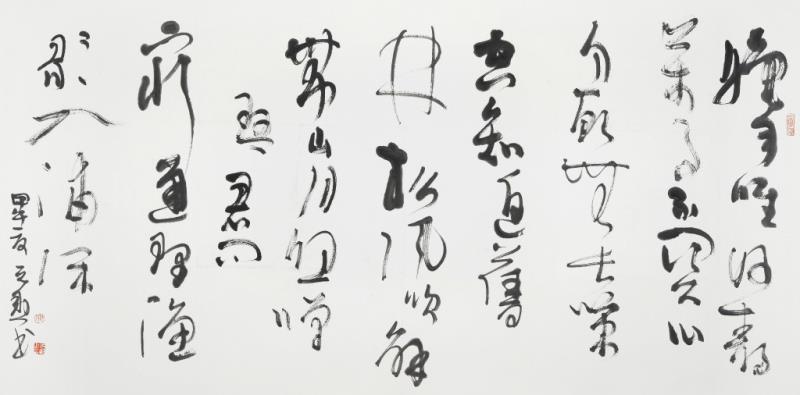 晚年唯好靜
萬事不關心
自顧無長策
空知返舊
林松風吹解
帶山月照彈
琴君問
窮通理漁
歌入浦深
甲午夏書